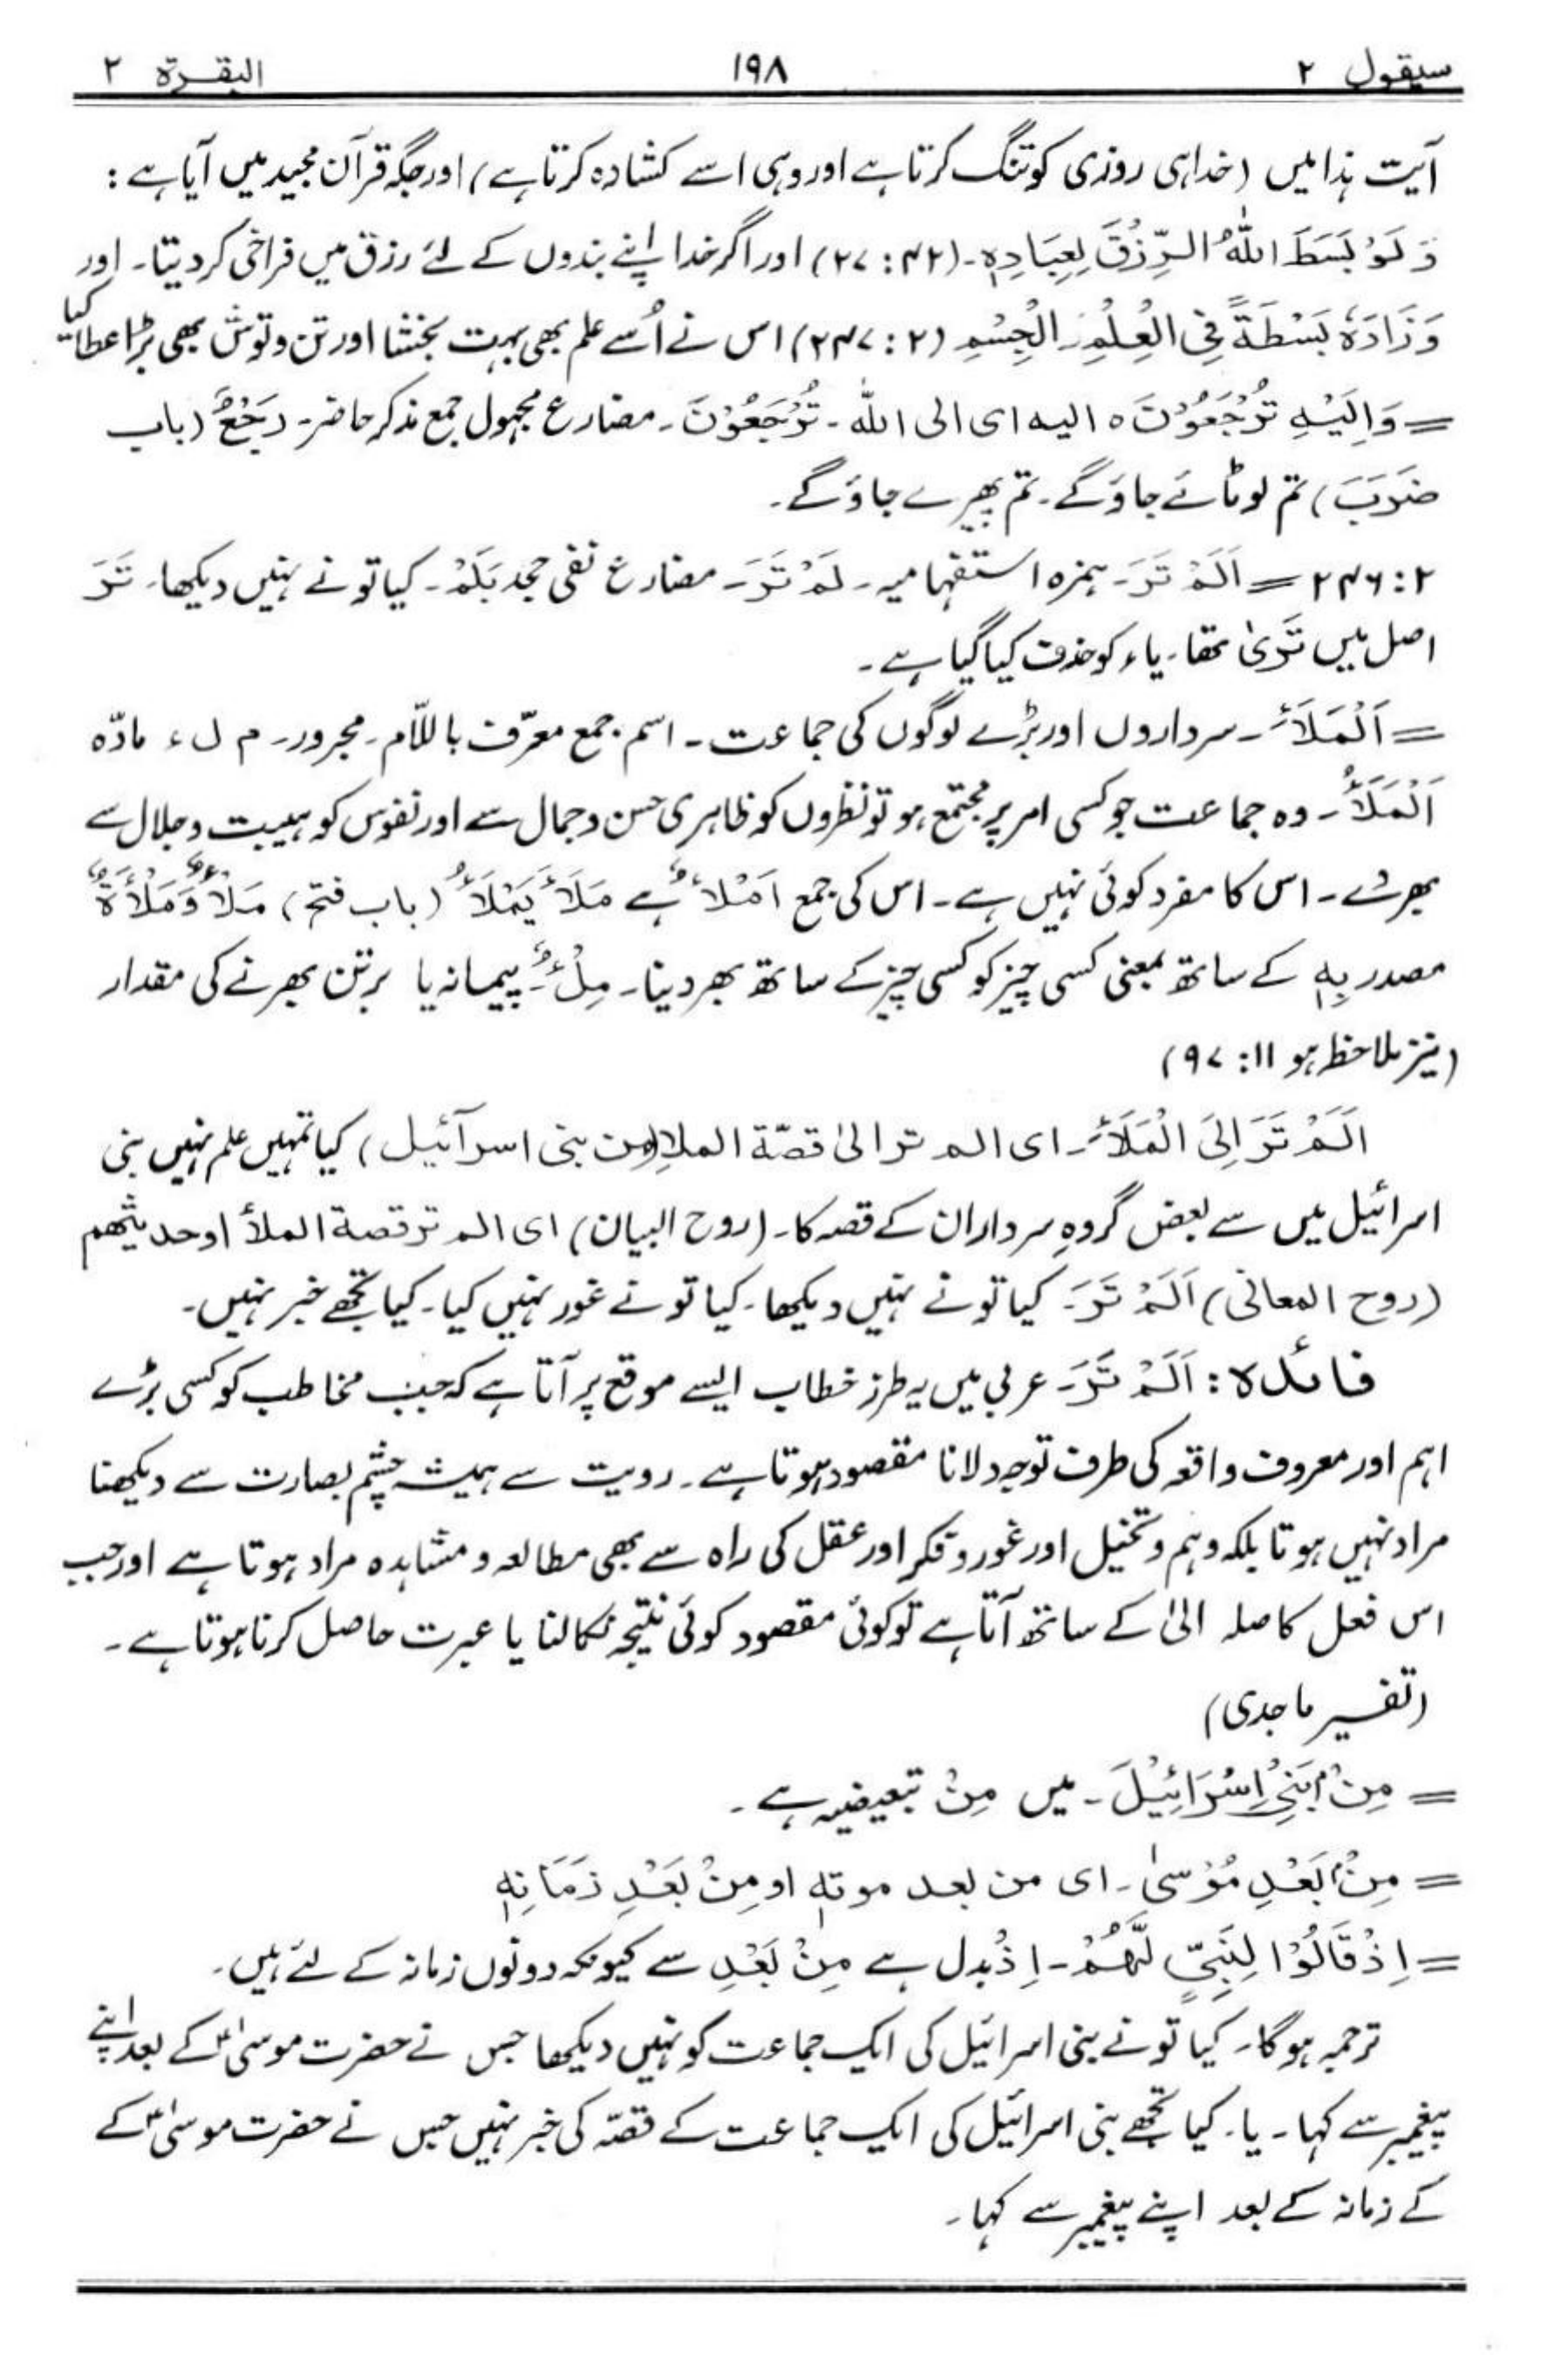 سیقول ۲ ۱۹۸ البقرة ۲
آیت ہذا میں (خدا ہی روزی کو تنگ کرتا ہے اور وہی اسے کشادہ کرتا ہے) اور جگہ قرآن مجید میں آیا ہے :
وَ لَوْ بَسَطَ اللّٰهُ الرِّزْقَ لِعِبَادِهٖ۔ (۴۲ : ۲۷) اور اگر خدا اپنے بندوں کے لئے رزق میں فراخی کر دیتا۔ اور
وَزَادَهٗ بَسْطَةً فِی الْعِلْمِ وَ الْجِسْمِ (۲ : ۲۴۷) اس نے اُسے علم بھی بہت بخشا اور تن و توش بھی بڑا عطا کیا
= وَاِلَیْهِ تُرْجَعُوْنَ ه الیه ای الی اللّٰه ۔ تُرْجَعُوْنَ ۔ مضارع مجہول جمع مذکر حاضر۔ رَجْعٌ (باب
ضَرَبَ) تم لوٹائے جاؤگے۔ تم پھیرے جاؤگے۔
۲ : ۲۴۶ = اَلَمْ تَرَ۔ ہمزہ استفہامیہ۔ لَمْ تَرَ۔ مضارع نفی جحد بَلَمْ۔ کیا تو نے نہیں دیکھا۔ تَرَ
اصل میں تَرٰی تھا۔ یاء کو حذف کیا گیا ہے۔
= اَلْمَلَاِ۔ سرداروں اور بڑے لوگوں کی جماعت۔ اسم جمع معرّف باللّام۔ مجرور۔ م ل ء مادّہ
اَلْمَلَأُ۔ وہ جماعت جو کسی امر پر مجتمع ہو تو نظروں کو ظاہری حسن و جمال سے اور نفوس کو ہیبت و جلال سے
بھردے۔ اس کا مفرد کوئی نہیں ہے۔ اس کی جمع اَمْلَاءٌ ہے مَلَأَ یَمْلَأُ (باب فتح) مَلْأٌ وَمَلْأَةٌ
مصدر بِهٖ کے ساتھ بمعنی کسی چیز کو کسی چیز کے ساتھ بھر دینا۔ مِلْءٌ پیمانہ یا برتن بھرنے کی مقدار
(نیز ملاحظہ ہو ۱۱ : ۹۷)
اَلَمْ تَرَ اِلَی الْمَلَاِ۔ ای الم تر الیٰ قصّة الملاِ (من بنی اسرآئیل) کیا تمہیں علم نہیں بنی
اسرائیل میں سے بعض گروہِ سرداران کے قصہ کا۔ (روح البیان) ای الم تر قصة الملأ او حدیثھم
(روح المعانی) اَلَمْ تَرَ۔ کیا تو نے نہیں دیکھا۔ کیا تو نے غور نہیں کیا۔ کیا تجھے خبر نہیں۔
فائدہ : اَلَمْ تَرَ۔ عربی میں یہ طرز خطاب ایسے موقع پر آتا ہے کہ جب مخاطب کو کسی بڑے
اہم اور معروف واقعہ کی طرف توجہ دلانا مقصود ہوتا ہے۔ رویت سے ہمیشہ چشم بصارت سے دیکھنا
مراد نہیں ہوتا بلکہ وہم و تخیل اور غور و فکر اور عقل کی راہ سے بھی مطالعہ و مشاہدہ مراد ہوتا ہے اور جب
اس فعل کا صلہ الیٰ کے ساتھ آتا ہے تو کوئی مقصود کوئی نتیجہ نکالنا یا عبرت حاصل کرنا ہوتا ہے۔
(تفسیر ماجدی)
= مِنْۢ بَنِیْٓ اِسْرَائِیْلَ۔ میں مِنْ تبعیضیہ ہے۔
= مِنْۢ بَعْدِ مُوْسیٰ۔ ای من بعد موتهٖ او مِنْ بَعْدِ زَمَانِهٖ
= اِذْ قَالُوْا لِنَبِیٍّ لَّهُمْ۔ اِذْ بدل ہے مِنْ بَعْدِ سے کیونکہ دونوں زمانہ کے لئے ہیں۔
ترجمہ ہوگا۔ کیا تو نے بنی اسرائیل کی ایک جماعت کو نہیں دیکھا جس نے حضرت موسیٰؑ کے بعد اپنے
پیغمبر سے کہا۔ یا۔ کیا تجھے بنی اسرائیل کی ایک جماعت کے قصّہ کی خبر نہیں جس نے حضرت موسیٰؑ کے
کے زمانہ کے بعد اپنے پیغمبر سے کہا۔